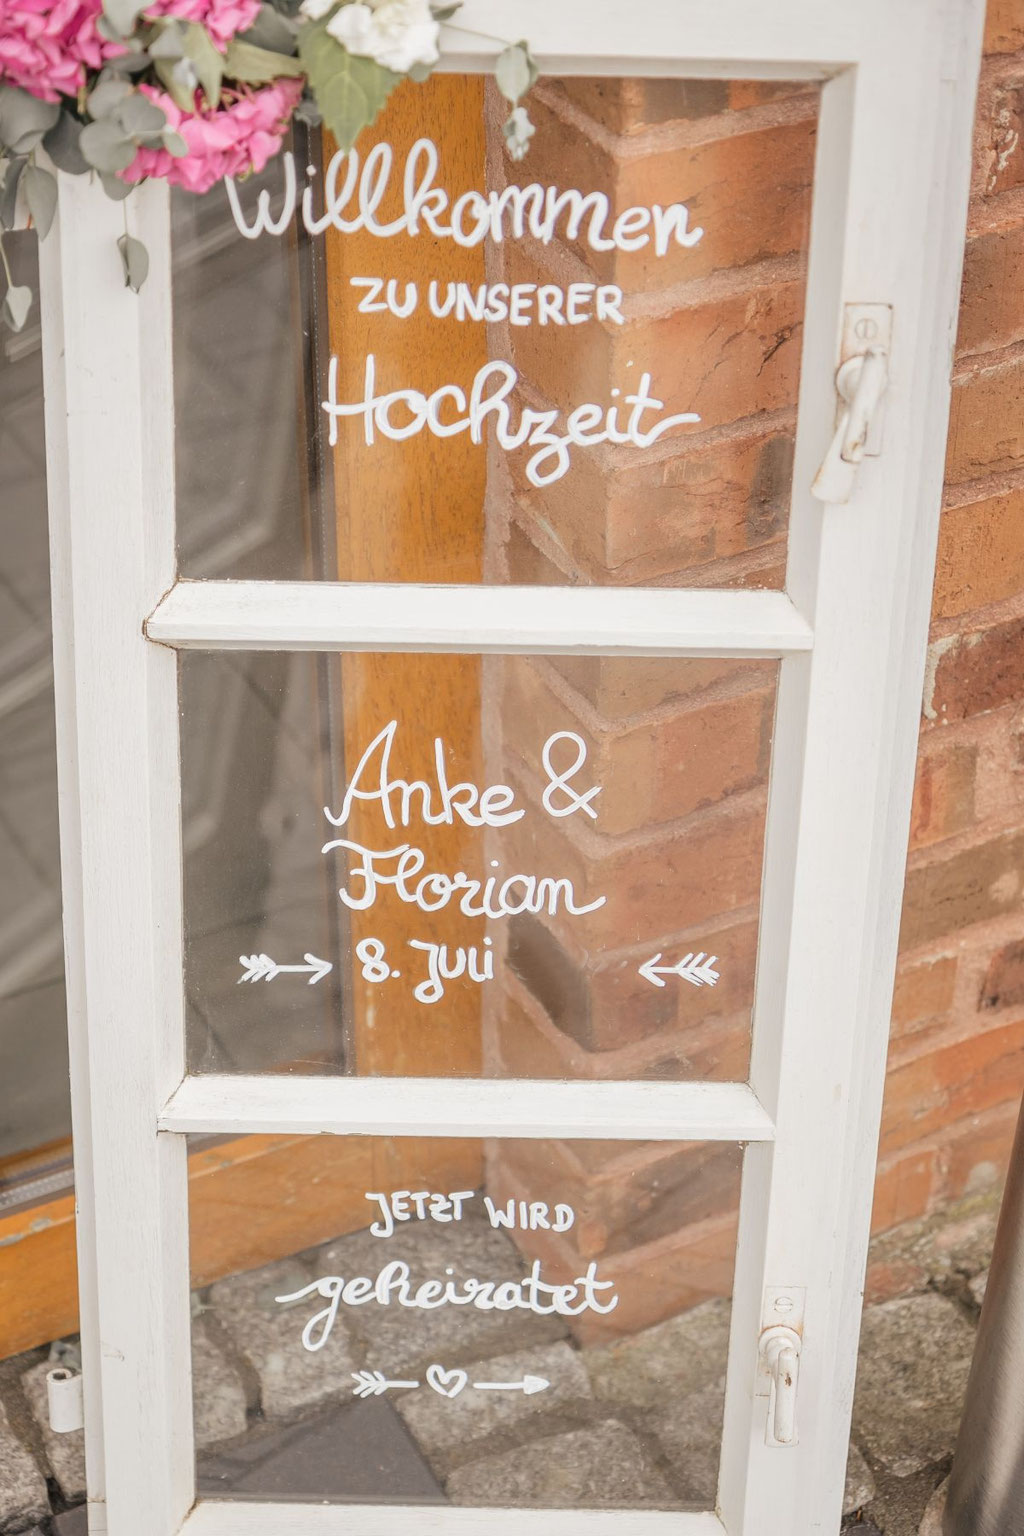 Willkommen
ZU UNSERER
Hochzeit
Anke &
Florian
8. Juli
JETZT WIRD
geheiratet